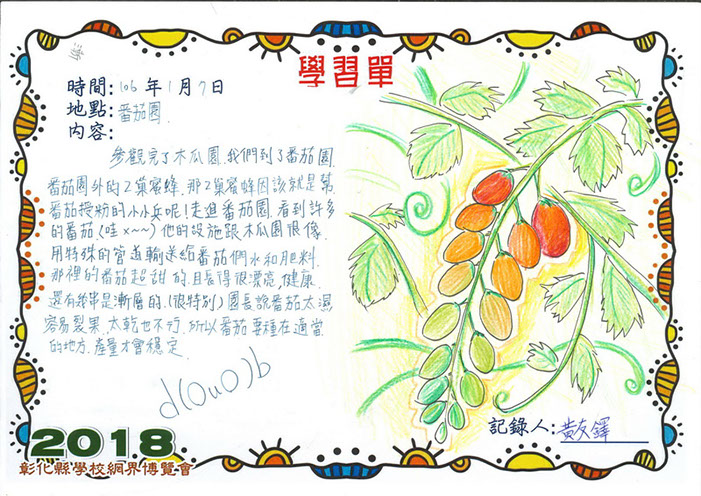 學習單
時間:106年1月7日
地點:番茄園
內容:
參觀完了木瓜園,我們到了番茄園
番茄園外的2巢蜜蜂,那2巢蜜蜂因該就是幫
番茄授粉的小小兵呢!走進番茄園,看到許多
的番茄(哇x~~)他的設施跟木瓜園很像,
用特殊的管道輸送給番茄們水和肥料,
那裡的番茄超甜的,且長得很漂亮,健康
還有幾串是漸層的,(很特別)園長說番茄太濕
容易裂果,太乾也不行,所以番茄要種在適當
的地方,產量才會穩定
d(OuO)b
記錄人:黃友鐸
2018
彰化縣學校網界博覽會